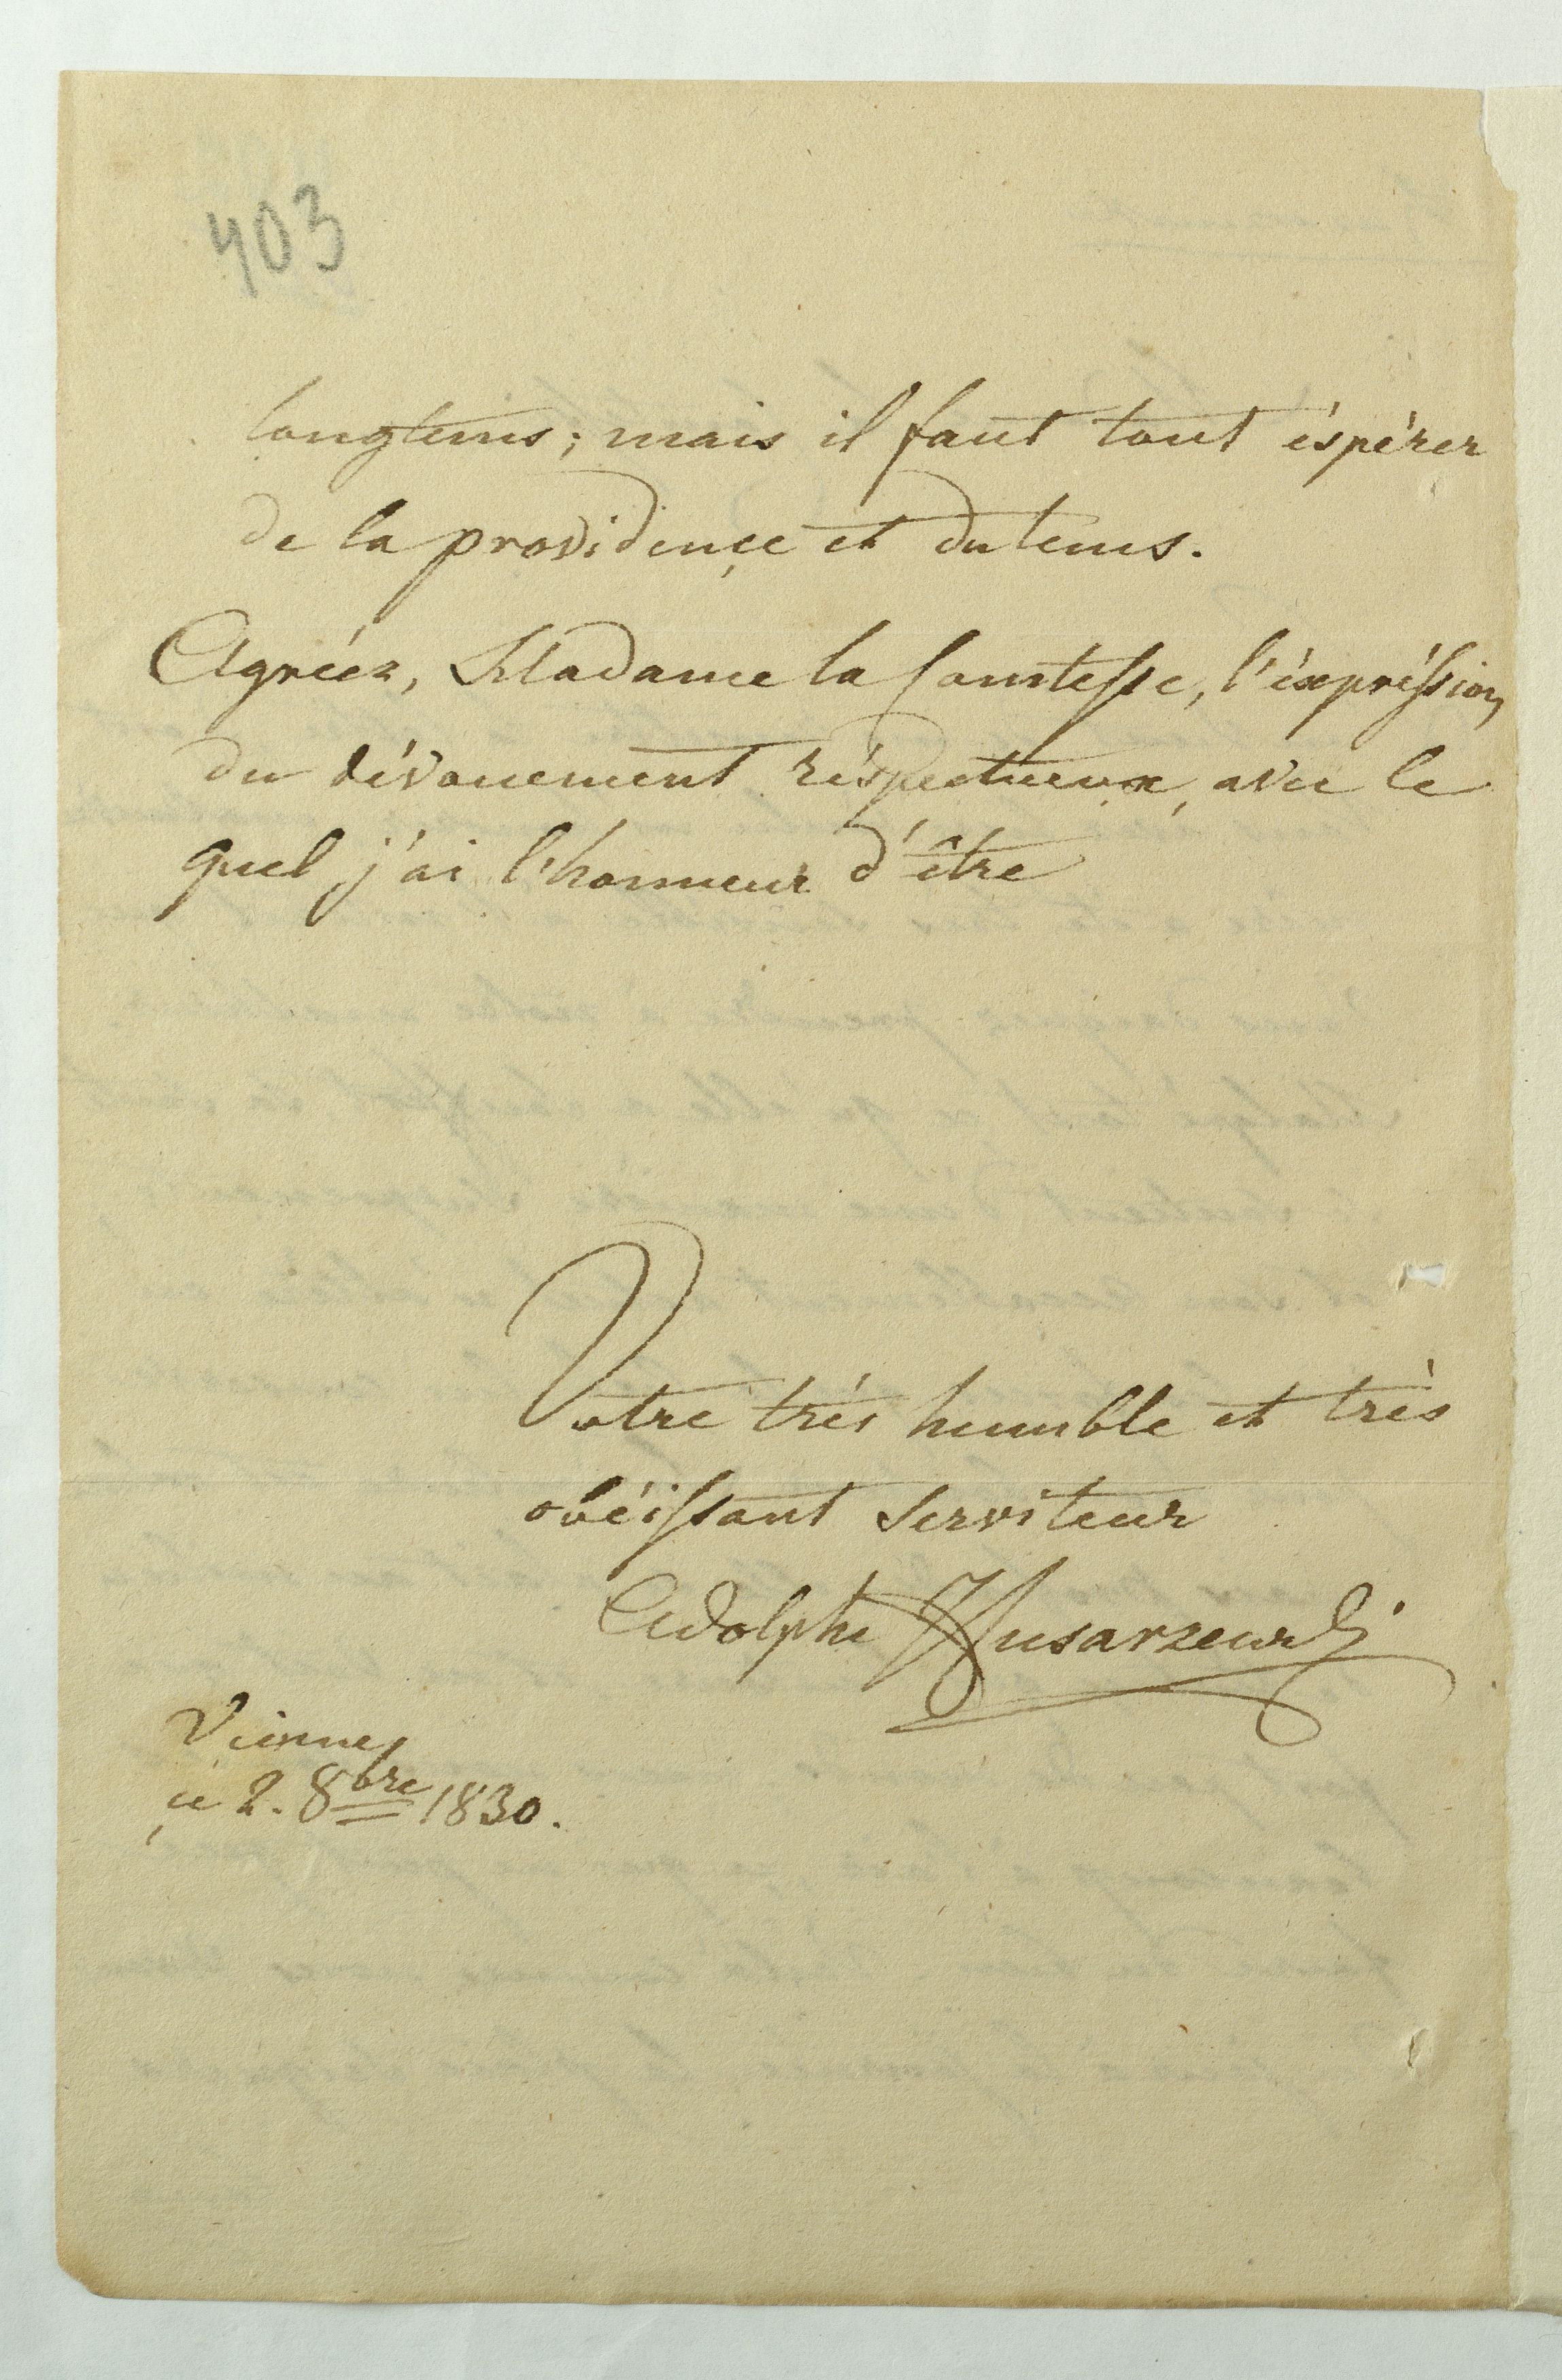 403
longtems; mais il faut tout éspérer
de la providençe et du tems.
Agréez, Madame la Comtesse, l'éxpréssion
du dévouement réspectueux, avec le
quel j'ai l'honneur d'être
Votre trés humble et très
obéissant serviteur
Adolphe Husarzewski
Vienne,
çe 2. 8bre 1830.